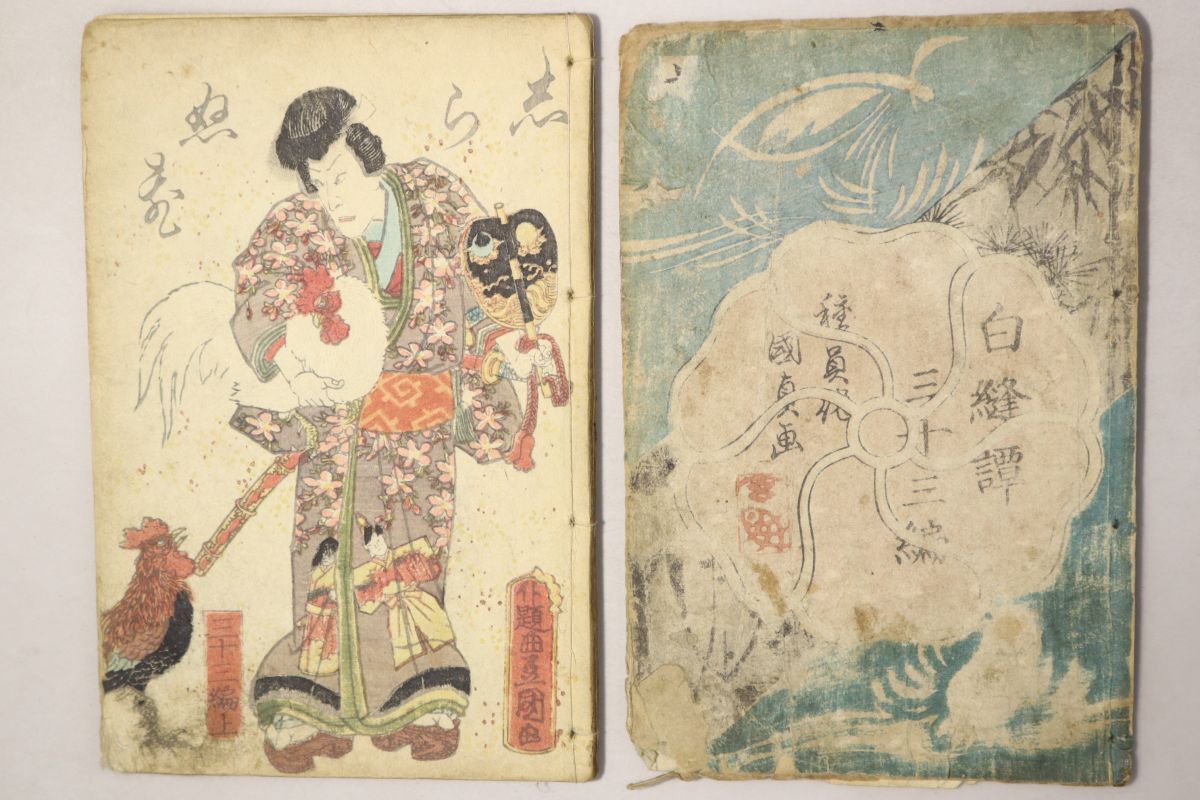 志らぬ
三十二編上
外題豊国画
白縫譚
三十三編
種員作
國貞画